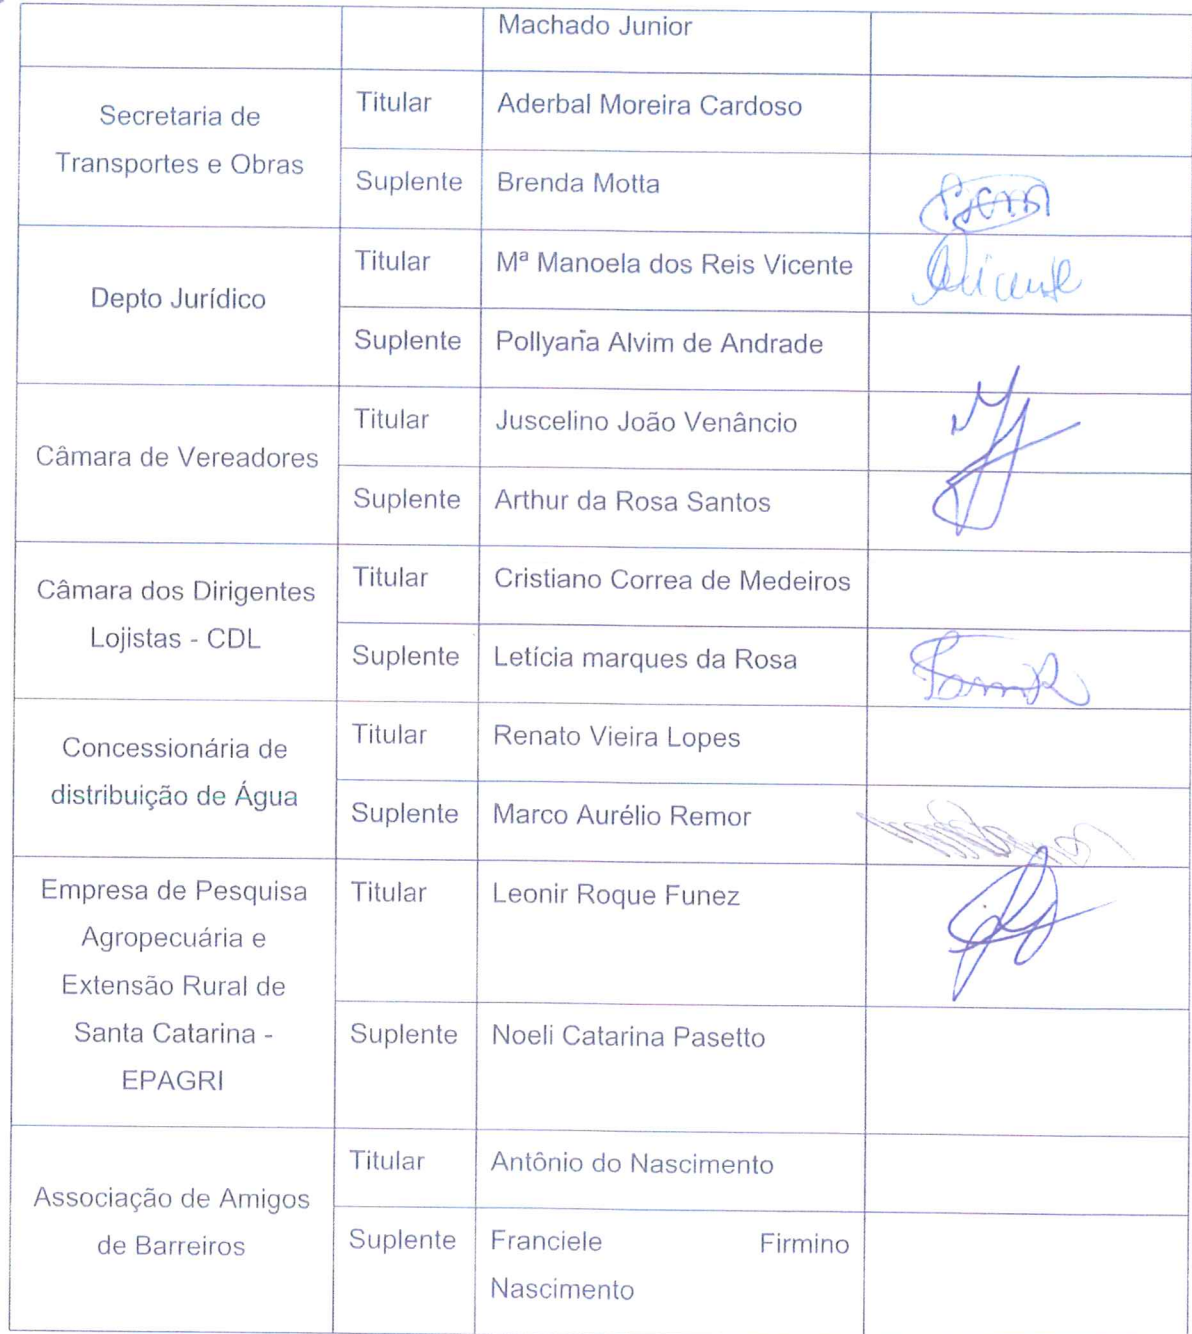 Machado Junior
Secretaria de
Transportes e Obras
Titular
Aderbal Moreira Cardoso
Suplente
Brenda Motta
Depto Jurídico
Titular
Mª Manoela dos Reis Vicente
Vicente
Suplente
Pollyana Alvim de Andrade
Câmara de Vereadores
Titular
Juscelino João Venâncio
Suplente
Arthur da Rosa Santos
Câmara dos Dirigentes
Lojistas - CDL
Titular
Cristiano Correa de Medeiros
Suplente
Letícia marques da Rosa
Concessionária de
distribuição de Água
Titular
Renato Vieira Lopes
Suplente
Marco Aurélio Remor
Empresa de Pesquisa
Agropecuária e
Extensão Rural de
Santa Catarina -
EPAGRI
Titular
Leonir Roque Funez
Suplente
Noeli Catarina Pasetto
Associação de Amigos
de Barreiros
Titular
Antônio do Nascimento
Suplente
Franciele Firmino
Nascimento